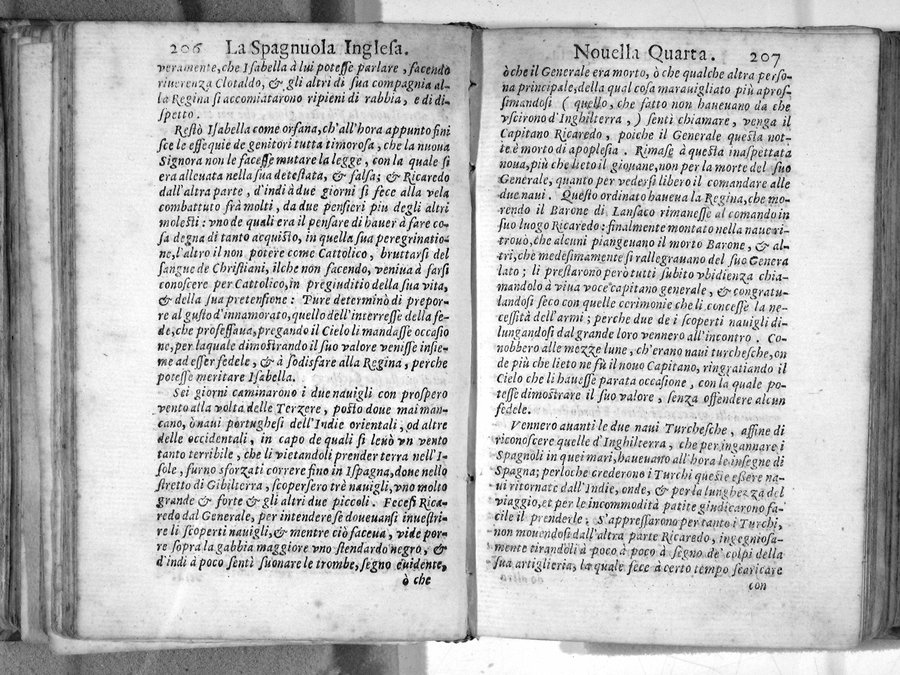 206 La Spagnuola Inglesa.
veramente, che Isabella à lui potesse parlare, facendo
riuerenza Clotaldo, & gli altri di sua compagnia al-
la Regina si accomiatarono ripieni di rabbia, e di di-
spetto.
Restò Isabella come orfana, ch'all'hora appunto fini
sce le essequie de genitori tutta timorosa, che la nuoua
Signora non le facesse mutare la legge, con la quale si
era alleuata nella sua detestata, & falsa; & Ricaredo
dall'altra parte, d'indi à due giorni si fece alla vela
combattuto frà molti, da due pensieri piu degli altri
molesti: vno de quali era il pensare di hauer à fare co-
sa degna di tanto acquisto, in quella sua peregrinatio-
ne, l'altro il non potere come Cattolico, bruttarsi del
sangue de Christiani, ilche non facendo, veniua à farsi
conoscere per Cattolico, in pregiuditio della sua vita,
& della sua pretensione: Pure determinò di prepor-
re al gusto d'innamorato, quello dell'interresse della fe-
de, che professaua, pregando il Cielo li mandasse occasio
ne, per laquale dimostrando il suo valore venisse insie-
me ad esser fedele, & à sodisfare alla Regina, perche
potesse meritare Isabella.
Sei giorni caminarono i due nauigli con prospero
vento alla volta delle Terzere, posto doue mai man-
cano, ò naui portughesi dell'Indie orientali, od altre
delle occidentali, in capo de quali si leuò vn vento
tanto terribile, che li vietandoli prender terra nell'I-
sole, furno sforzati correre fino in Ispagna, doue nello
stretto di Gibilterra, scopersero trè nauigli, vno molto
grande & forte & gli altri due piccoli. Fecesi Rica-
redo dal Generale, per intendere se doueuansi inuesti-
re li scoperti nauigli, & mentre ciò faceua, vide por-
re sopra la gabbia maggiore vno stendardo negro, &
d'indi à poco sentì suonare le trombe, segno euidente,
ò che
Nouella Quarta. 207
ò che il Generale era morto, ò che qualche altra perso-
na principale, della qual cosa marauigliato più apros-
simandosi ( quello, che fatto non haueuano da che
vscirono d'Inghilterra, ) sentì chiamare, venga il
Capitano Ricaredo, poiche il Generale questa not-
te è morto di apoplesia. Rimase à questa inaspettata
noua, più che lieto il giouane, non per la morte del suo
Generale, quanto per vedersi libero il comandare alle
due naui. Questo ordinato haueua la Regina, che mo-
rendo il Barone di Lansaco rimanesse al comando in
suo luogo Ricaredo: finalmente montato nella naue ri-
trouò, che alcuni piangeuano il morto Barone, & al-
tri, che medesimamente si rallegrauano del suo Genera
lato; li prestarono però tutti subito vbidienza chia-
mandolo à viua voce capitano generale, & congratu-
landosi seco con quelle cerimonie che li concesse la ne-
cessità dell'armi; perche due de i scoperti nauigli di-
lungandosi dal grande loro vennero all'incontro. Co-
nobbero alle mezze lune, ch'erano naui turchesche, on
de più che lieto ne fù il nouo Capitano, ringratiando il
Cielo che li hauesse parata occasione, con la quale po-
tesse dimostrare il suo valore, senza offendere alcun
fedele.
Vennero auanti le due naui Turchesche, affine di
riconoscere quelle d'Inghilterra, che per ingannare i
Spagnoli in quei mari, haueuano all'hora le insegne di
Spagna; perloche crederono i Turchi queste essere na-
ui ritornate dall'Indie, onde, & per la lunghezza del
viaggio, et per le incommodità patite giudicarono fa-
cile il prenderle; S'appressarono per tanto i Turchi,
non mouendosi dall'altra parte Ricaredo, ingegniosa-
mente tirandoli à poco à poco à segno de' colpi della
sua artiglieria, la quale fece à certo tempo scaricare
con